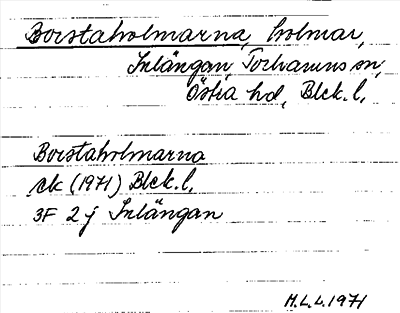 Borstaholmarna, holmar,
Inlängan, Torhamns sn,
Östra hd, Blek. l.
Borstaholmarna
ek (1971) Blek. l.
3F 2j Inlängan
H.L.L. 1971